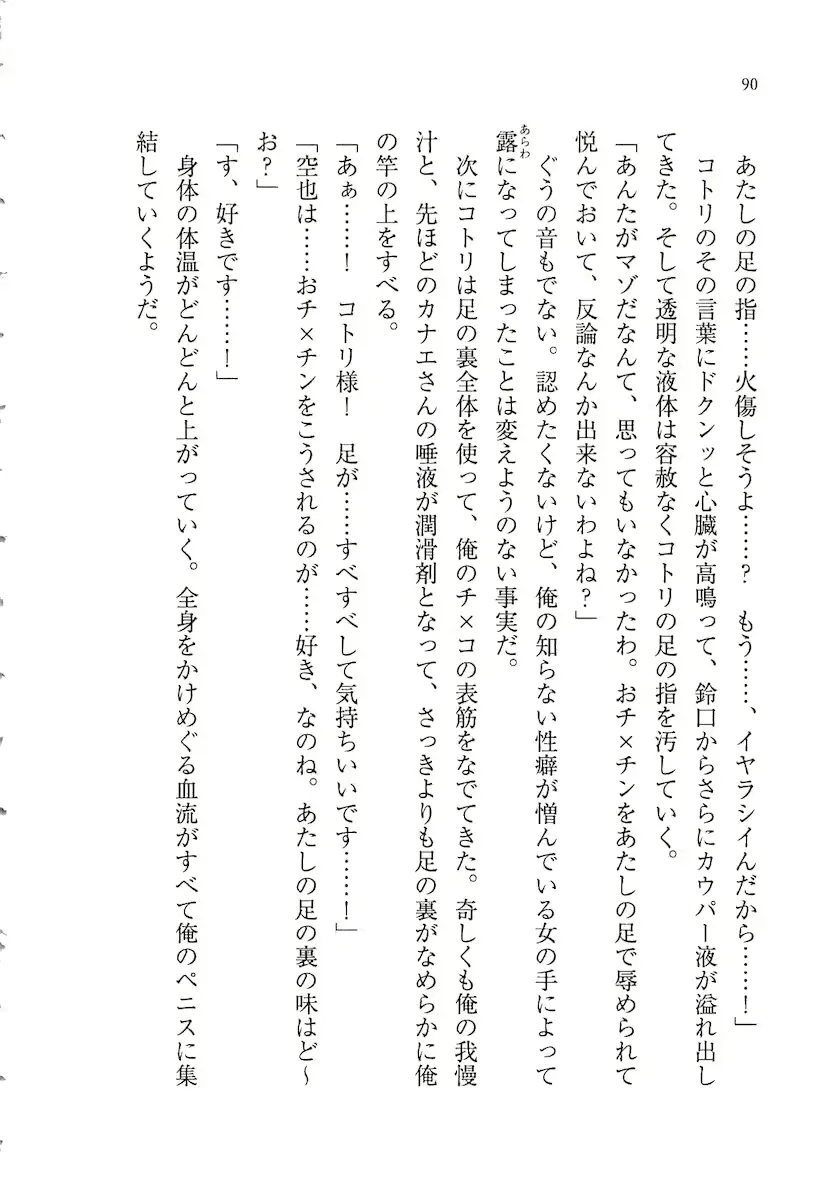 90
あたしの足の指……火傷しそうよ……？　もう……、イヤラシイんだから……！」
コトリのその言葉にドクンッと心臓が高鳴って、鈴口からさらにカウパー液が溢れ出し
てきた。そして透明な液体は容赦なくコトリの足の指を汚していく。
「あんたがマゾだなんて、思ってもいなかったわ。おチ×チンをあたしの足で辱められて
悦んでおいて、反論なんか出来ないわよね？」
ぐうの音もでない。認めたくないけど、俺の知らない性癖が憎んでいる女の手によって
露になってしまったことは変えようのない事実だ。
あらわ
次にコトリは足の裏全体を使って、俺のチ×コの表筋をなでてきた。奇しくも俺の我慢
汁と、先ほどのカナエさんの唾液が潤滑剤となって、さっきよりも足の裏がなめらかに俺
の竿の上をすべる。
「あぁ……！　コトリ様！　足が……すべすべして気持ちいいです……！」
「空也は……おチ×チンをこうされるのが……好き、なのね。あたしの足の裏の味はど～
お？」
「す、好きです……！」
身体の体温がどんどんと上がっていく。全身をかけめぐる血流がすべて俺のペニスに集
結していくようだ。